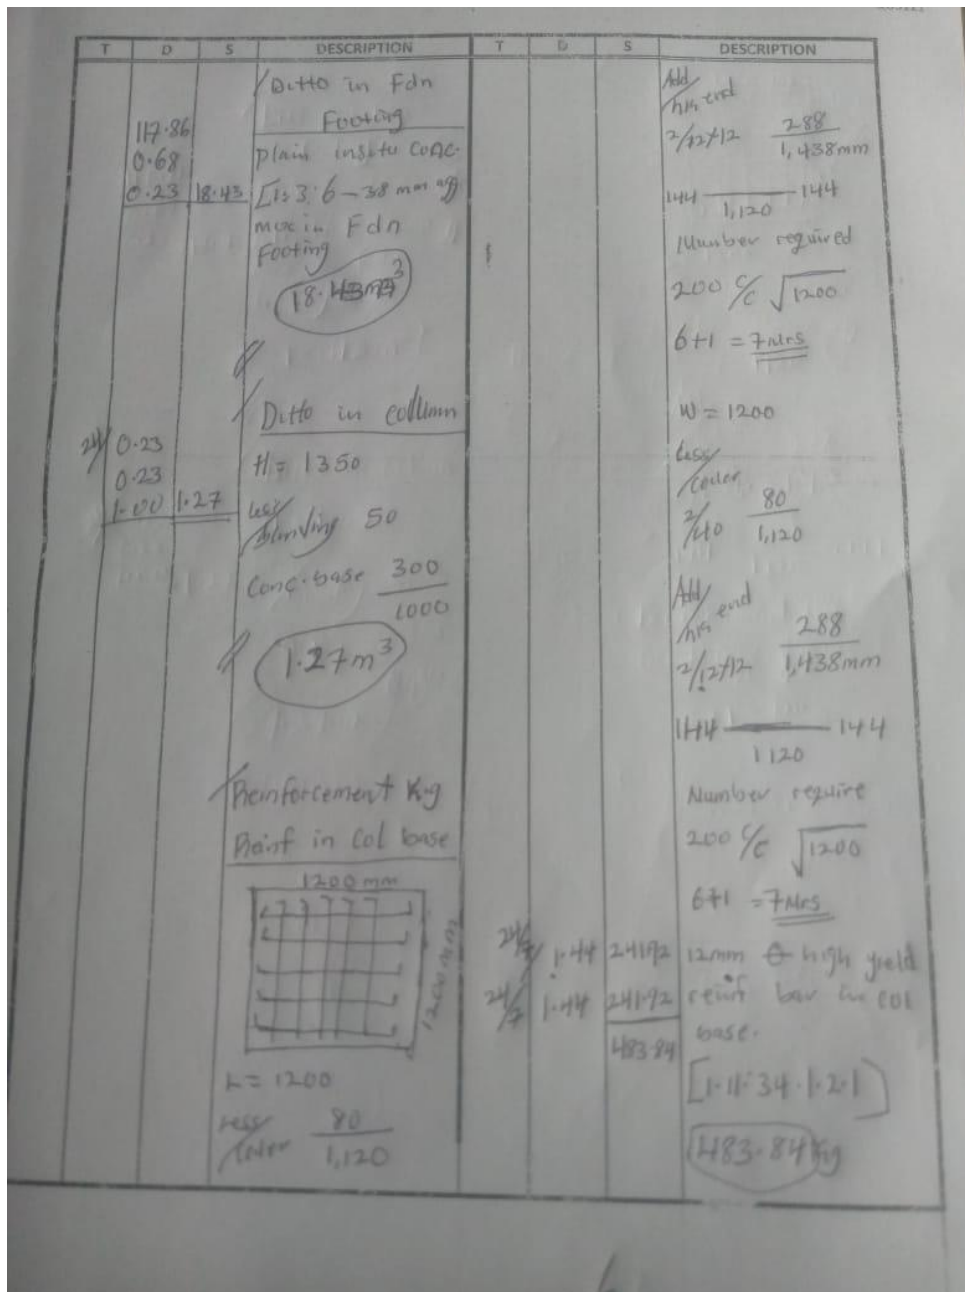 T D S DESCRIPTION T D S DESCRIPTION
Ditto in Fdn
Footing
117.86
0.68
0.23 18.43
Plain insitu conc.
[1:3:6 - 38 mm agg
mix in Fdn
Footing
18.43m3
Ditto in collumn
24/ 0.23
0.23
1.00 1.27
H = 1350
less/
blinding 50
Conc. base 300
1000
1.27m3
Reinforcement Kg
Reinf in Col base
1200 mm
1200 mm
L = 1200
less/
80
1,120
Add/
end
2/12+12 288
1,438mm
144 144
1,120
Number required
200 c/c 1200
6+1 = 7Nrs
W = 1200
Less/
80
2/40 1,120
Add/
end
2/12+12 288
1,438mm
144 144
1120
Number require
200 c/c 1200
6+1 = 7Nrs
24/7/ 1.44 241.92
24/7/ 1.44 241.92
483.84
12mm Ө high yield
reinf bar in col
base.
483.84 Kg